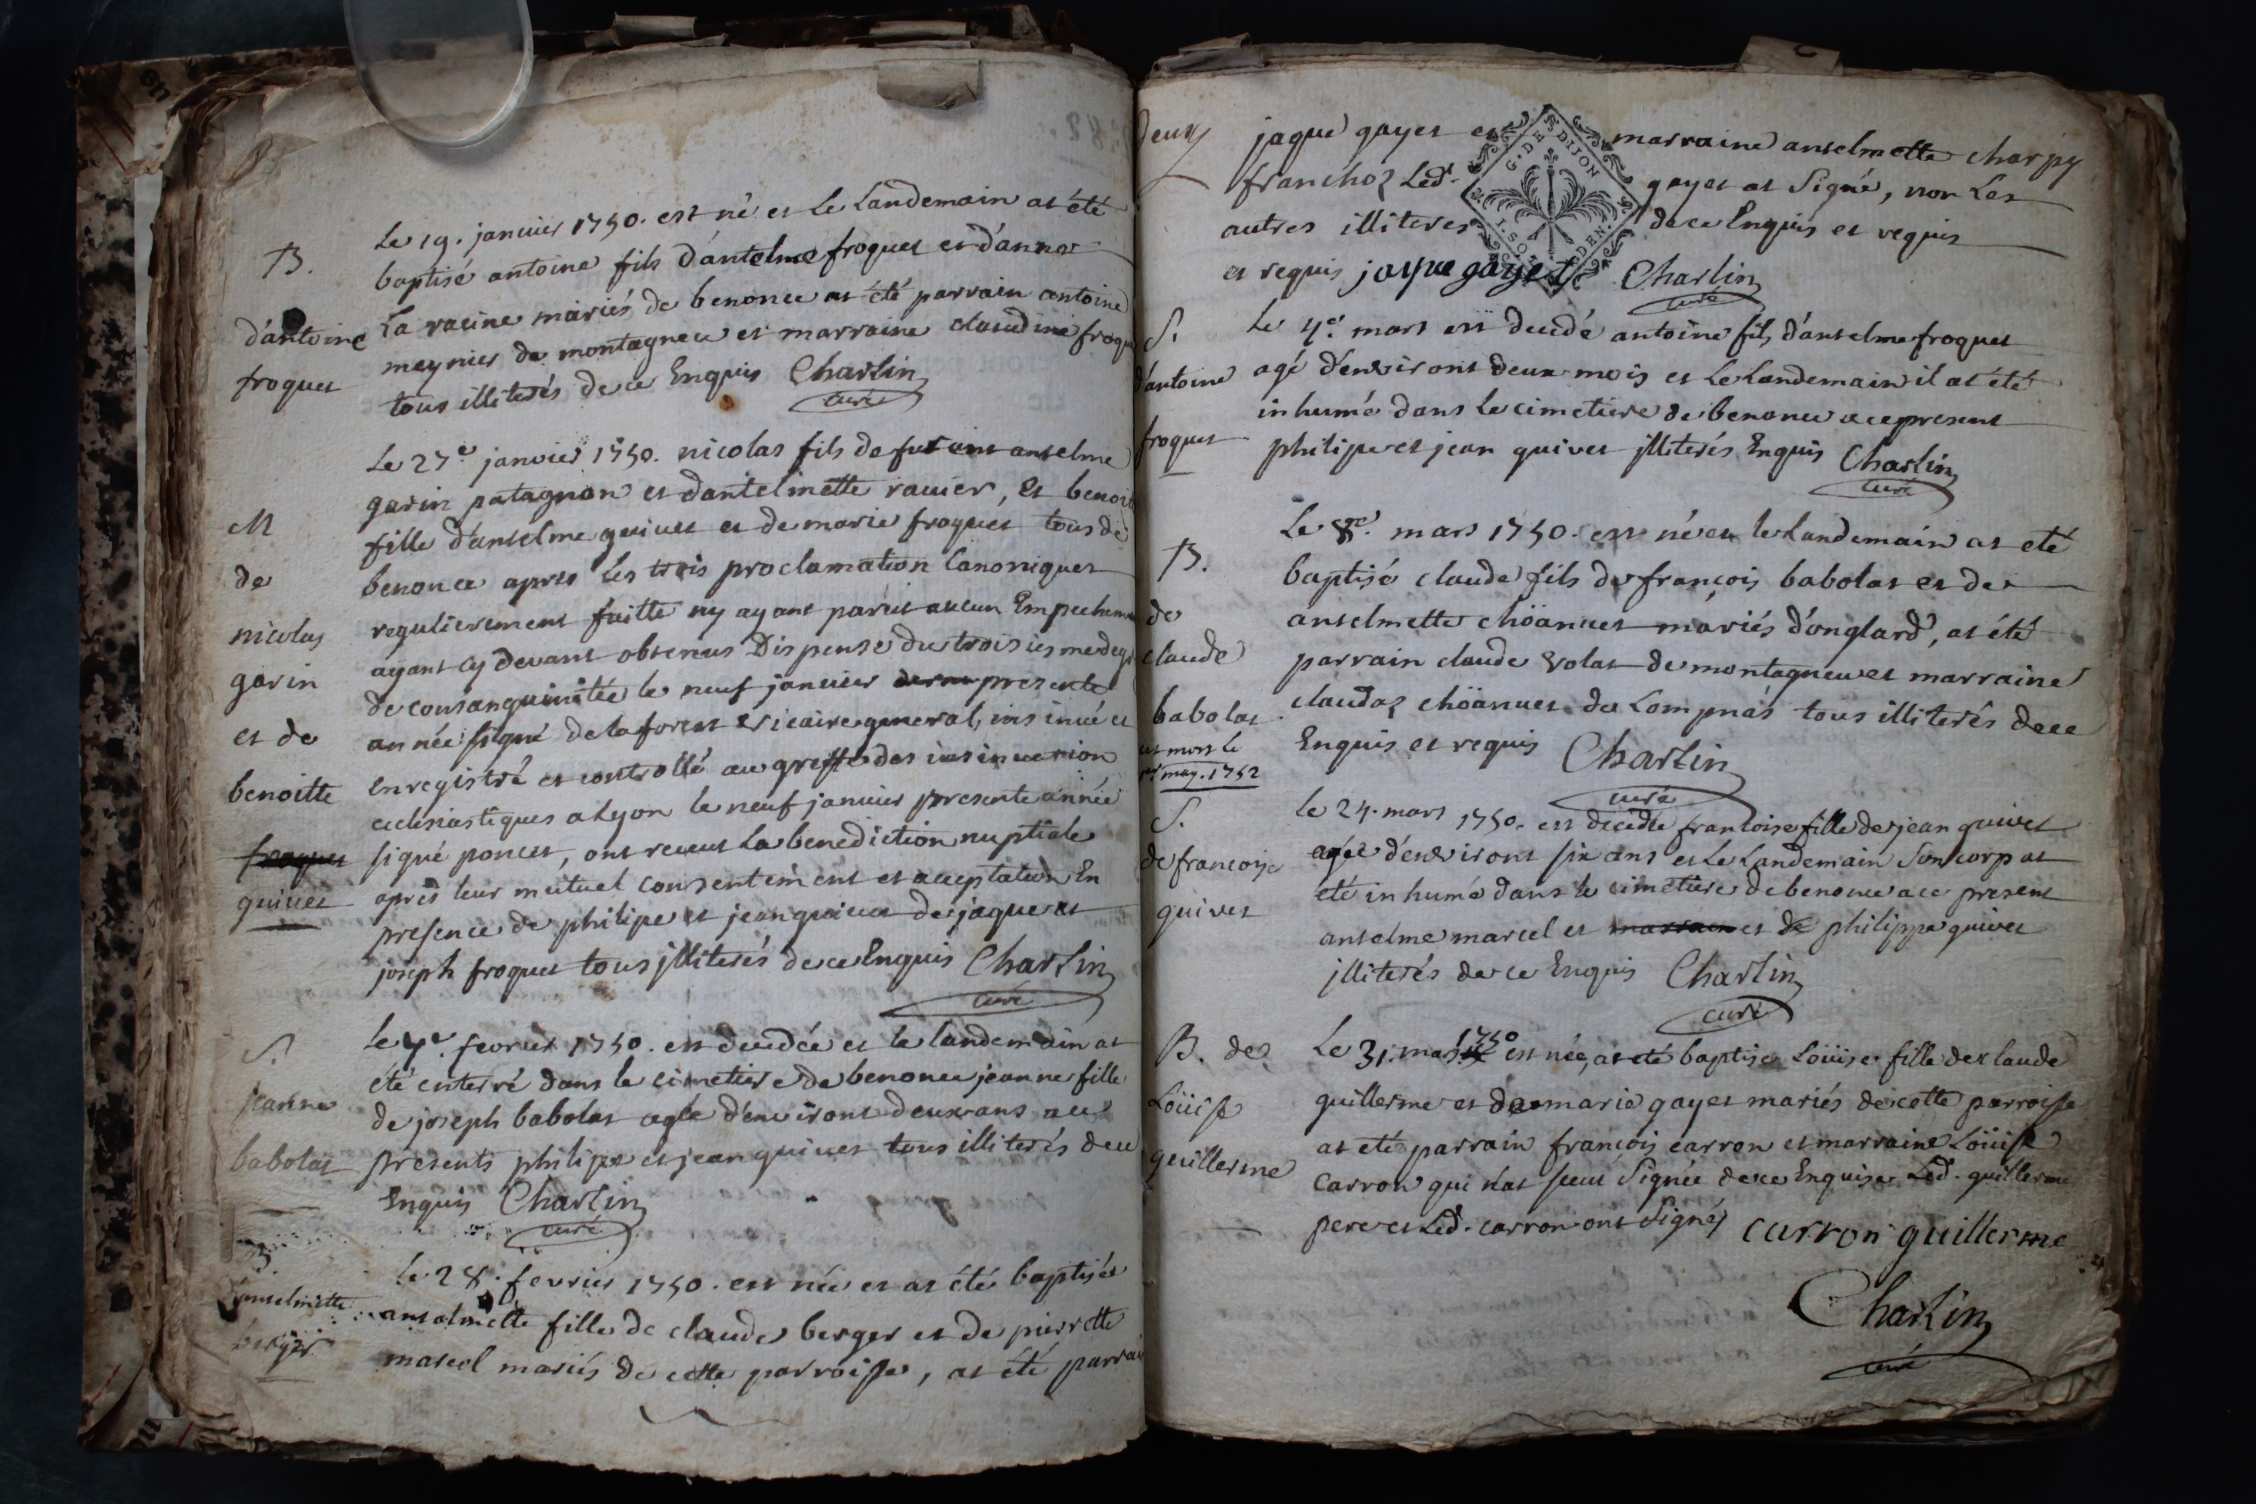 B.
d'antoine
froquet
Le 19. janvier 1750. est né et le Landemain at été
baptisé antoine fils d'antelme froquet et d'anne
La racine mariés de benonce at été parrain antoine
meynier de montagneu et marraine claudine froque
tous illiterés de ce Enquis Charlin
curé
M
de
nicolas
garin
et de
benoitte
froquet
quivet
Le 27e janvier 1750. nicolas fils de anselme
garin patagnon et d'antelmette ravier, Et benoit
fille d'anselme quivet et de marie froquet tous de
benonce apres les trois proclamation Canoniques
regulierement faitte ny ayant paruit aucun Empechem
ayant cy devant obtenus Dispense du troisiesme deg
de consanguinitée le neuf janvier presente
année signé de la forest vicaire general, insinué et
Enregistré et controllé au greffe des insinuation
eclesiastiques a Lyon le neuf janvier presente année
signé poncet, ont receut La benediction nuptiale
apres leur mutuel consentement et acceptation En
presence de philipe et jean quivet de jaque et
joseph froquet tous jlliterés de ce Enquis Charlin
curé
S.
jeanne
babolat
Le 7e. fevrier 1750. est decedée et le landemain at
été enterré dans le cimetiere de benonce jeanne fille
de joseph babolat agée d'environt deux ans au
presents philipe et jean quivet tous illiterés de ce
Enquis Charlin
curé
B.
anselmette
berger
le 28. fevrier 1750. est née et at été baptisée
anselmette fille de claude berger et de pierrette
marcel mariés de cette parroisse, at été parrai
deux
jaque gayet et marraine anselmette charpy
franchoz Led. gayet at Signé, non Les
autres illiteres de ce Enquis et requis
et requis jaque gayet Charlin
curé
S.
d'antoine
froquet
Le 4e. mars est decedé antoine fils d'anselme froquet
agé d'environt deux mois et Le Landemain il at été
inhumé dans Le cimetiere de benonce a ce present
philipe et jean quivet jlliterés Enquis Charlin
curé
B.
de
claude
babolat
est mort le
may. 1752
Le 8e. mars 1750. est né et le Landemain at eté
baptisé claude fils de françois babolat et de
anselmette chöanuet mariés d'onglard, at été
parrain claude volat de montagneu et marraine
claudaz chöanuet de Lompnas tous illiterés de ce
Enquis et requis Charlin
curé
S.
de francoise
quivet
le 24. mars 1750. est decedée francoise fille de jean quivet
agée d'environt six ans et Le Landemain Son corp at
eté inhumé dans le cimetiere de benonce a ce present
anselme marcel et et de philippe quivet
jlliterés de ce Enquis Charlin
curé
B. de
Loüise
guillerme
Le 31. mars 1750 est née, at eté baptise Loüise fille de claude
guillerme et de marie gayet mariés de cette parroisse
at eté parrain francois carron et marraine Loüise
carron qui n'at sceut Signée de ce Enquise Led. guillerme
pere et Led. carron ont Signés carron guillerme
Charlin
curé
G. DE DIJON